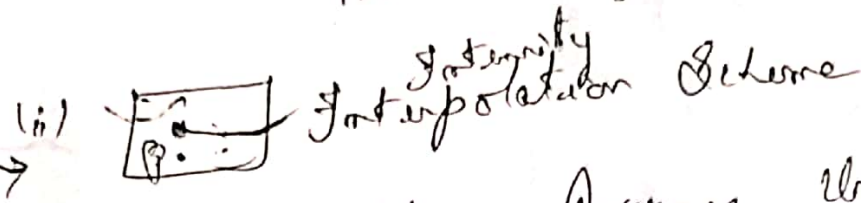 Intensity
(ii) Interpolation Scheme